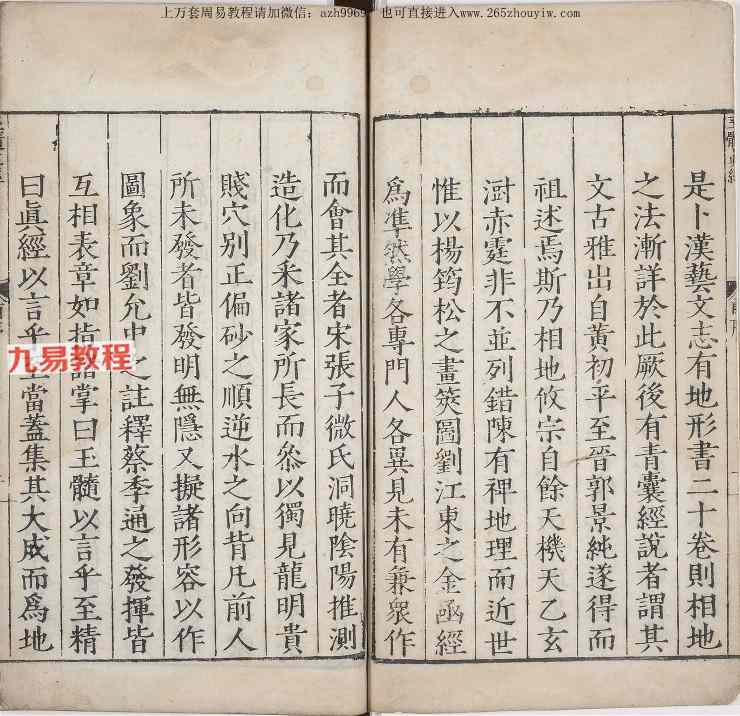 上万套周易教程请加微信：azh9969 也可直接进入www.265zhouyiw.com
是卜漢藝文志有地形書二十卷則相地
之法漸詳於此厥後有青囊經說者謂其
文古雅出自黃初平至晉郭景純遂得而
祖述焉斯乃相地攸宗自餘天機天乙玄
澍赤霆非不並列錯陳有禆地理而近世
惟以楊筠松之畫筴圖劉江東之金函經
爲凖然學各專門人各異見未有兼衆作
而會其全者宋張子微氏洞曉陰陽推測
造化乃釆諸家所長而叅以獨見龍明貴
賤穴別正偏砂之順逆水之向背凡前人
所未發者皆發明無隱又擬諸形容以作
圖象而劉允中之註釋蔡季通之發揮皆
互相表章如指諸掌曰玉髓以言乎至精
曰眞經以言乎至當蓋集其大成而爲地
九易教程